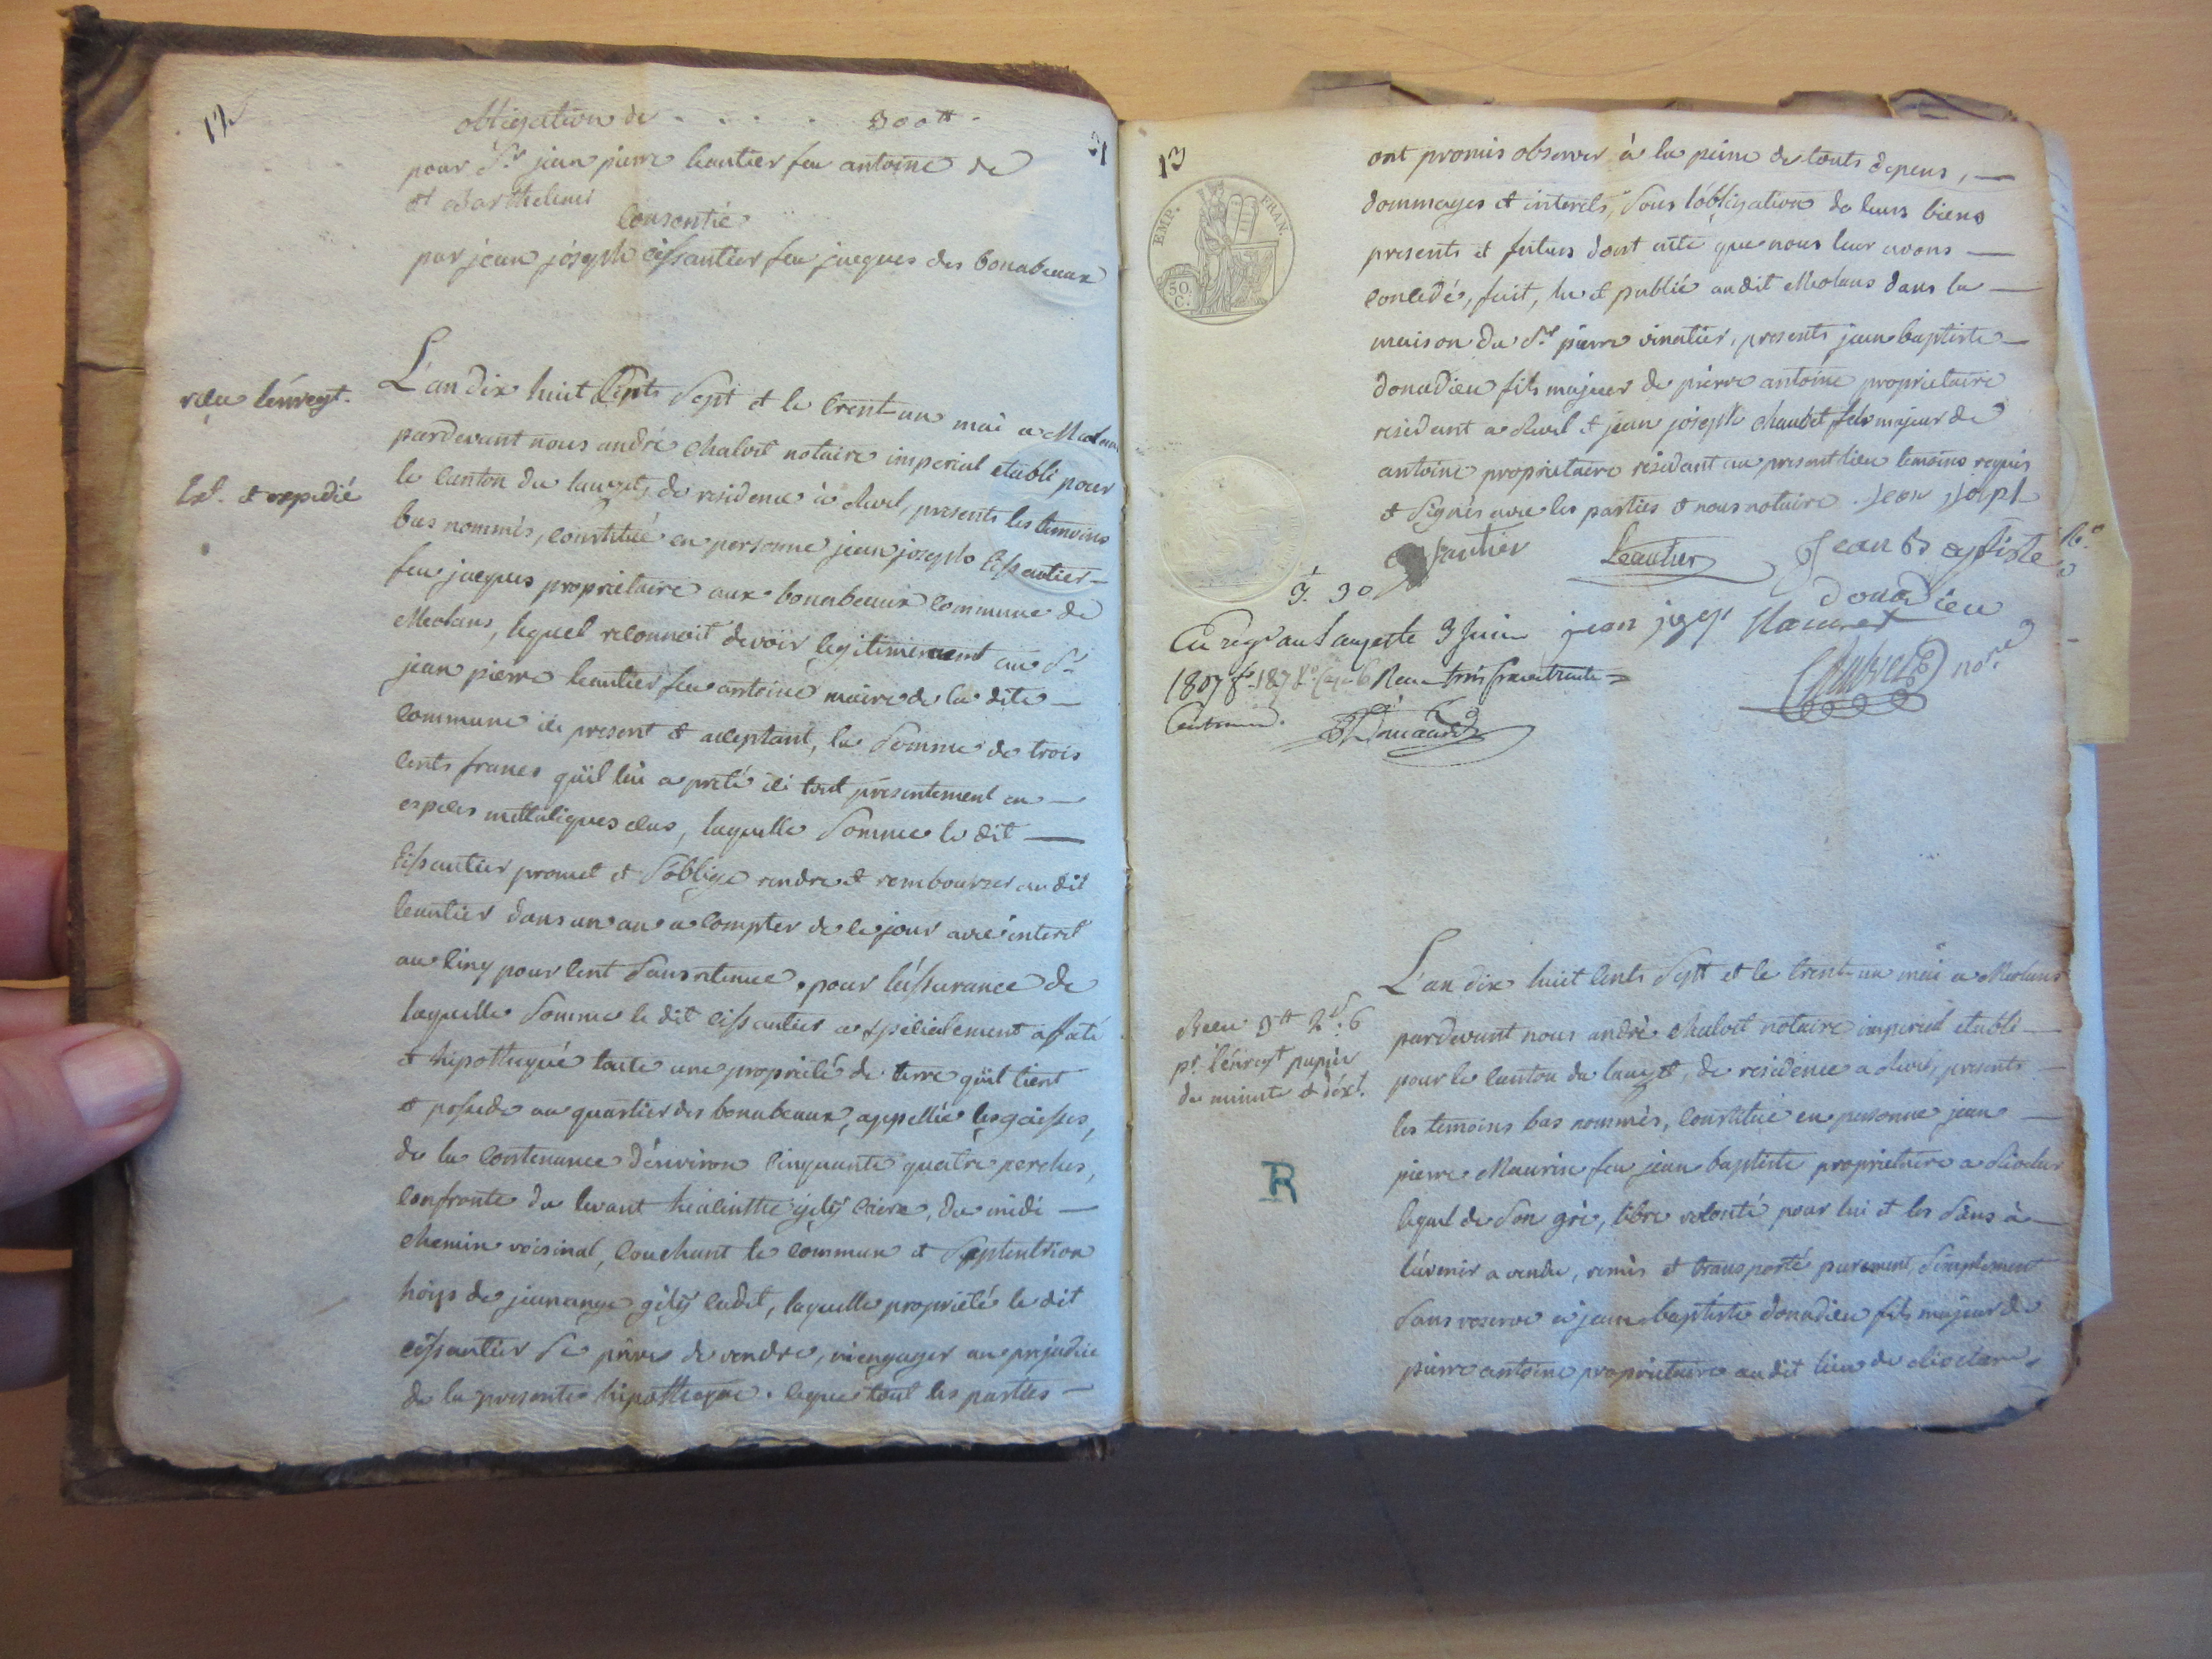 12
obligation de . . . . 300tt.
21
pour Sr. jean pierre leautier feu antoine de
st Barthelemi
consentie
par jean joseph eissautier feu jacques des bonabeaux
recu l'enregt.
ext. et expedié
L'an dix huit cents sept et le trent un mai a Meolans
pardevant nous andré chalvet notaire imperial etabli pour
le canton du lauzet, de residence à Revel, presents les temoins
bas nommés, constitué en personne jean joseph eissautier
feu jacques proprietaire aux bonabeaux commune de
Meolans, lequel reconnoit devoir legitimement au Sr.
jean pierre leautier feu antoine maire de la dite
commune ici present et acceptant, la somme de trois
cents francs qu'il lui a preté ici tout presentement en
especes mettaliques , laquelle somme le dit
eissautier promet et s'oblige rendre et rembourser au dit
leautier dans un an a compter de ce jour avec interet
au cinq pour cent sans retenue. pour l'assurance de
laquelle somme le dit eissautier a specialement affaté
et hipothequé toute une propriété de terre qu'il tient
et possede au quartier des bonabeaux, appellée les gaisses,
de la contenance d'environ cinquante quatre perches,
confronte du levant hiacinthe gilÿ , du midi
chemin voisinal, couchant le commun et septentrion
hoirs de jean ange gilÿ cadet, laquelle propriété le dit
eissautier se prive de vendre, ni engager au prejudice
de la presente hipotheque. ce que tout les parties
13
EMP. FRAN.
50 C.
ont promis observer à la peine de touts depens,
dommages et interets, sous l'obligation de leurs biens
presents et futurs dont acte que nous leur avons
concedé, fait, lu et publié au dit Meolans dans la
maison du Sr. pierre vinatier, presents jean baptiste
donadieu fils majeur de pierre antoine proprietaire
residant a Revel et jean joseph chaudet fils majeur de
antoine proprietaire residant au present lieu temoins requis
et signés avec les parties et nous notaire. jean joseph
eissautier Leautier Jean Baptiste
donadieu
3. 30
Enregé au Lauzet le 3 juin jean josep
1807 fo. 187 Vo. case 6 Recu trois francs trente
Centimes.
nore
Recu 3tt 2s. 6
pr. l'enregt papier
de minute et d'ext.
R
L'an dix huit cents sept et le trent un mai a Meolans
pardevant nous andré chalvet notaire imperial etabli
pour le canton du lauzet, de residence a Revel, presents
les temoins bas nommés, constitué en personne jean
pierre Maurin feu jean baptiste proprietaire a Rioclar
lequel de son gré, libre volonté pour lui et les siens à
l'avenir a vendu, remis et transporté purement, simplement
sans reserve a jean baptiste donadieu fils majeur de
pierre antoine proprietaire au dit lieu de Rioclar